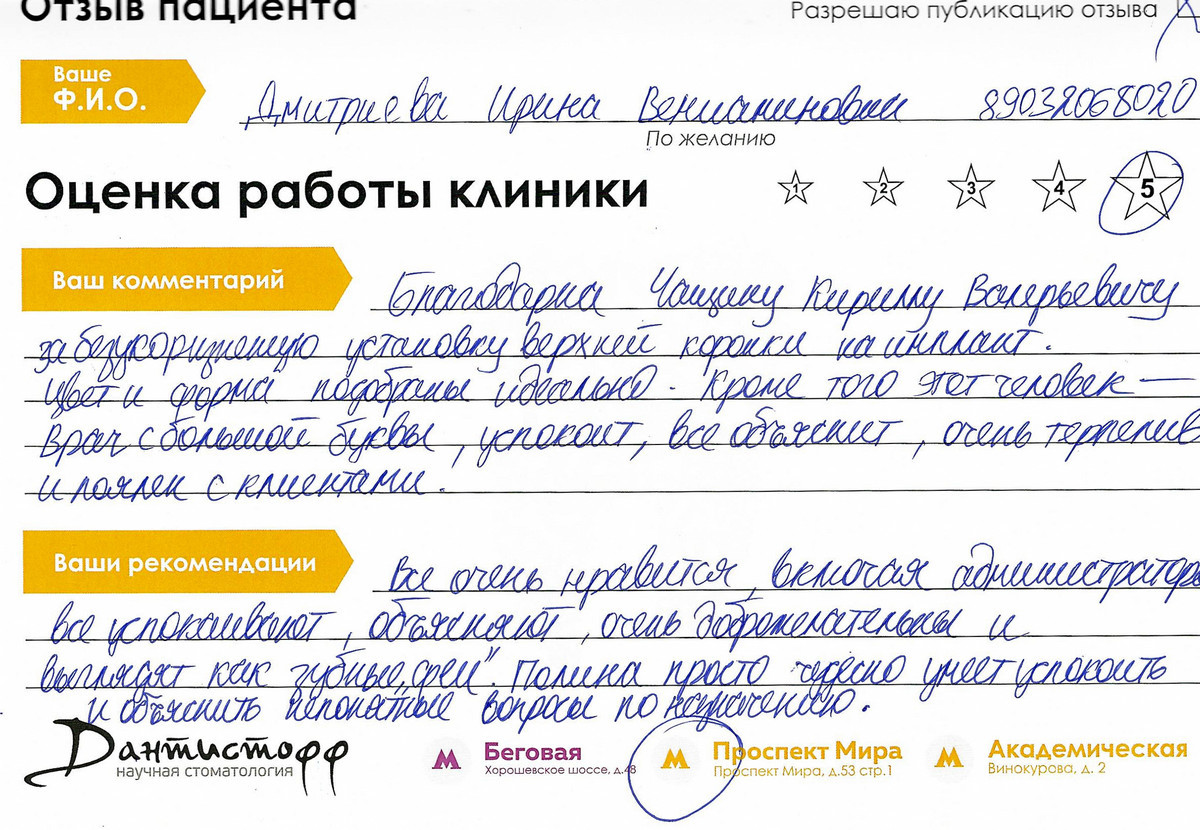 Отзыв пациента
Разрешаю публикацию отзыва
Ваше
Ф.И.О.
Дмитриева Ирина Вениаминовна 89032068020
По желанию
Оценка работы клиники
1 2 3 4 5
Ваш комментарий
Благодарна Чащину Кириллу Валерьевичу
за безукоризненную установку верхней коронки на имплант.
Цвет и форма подобраны идеально. Кроме того этот человек —
Врач с большой буквы, успокоит, все объяснит, очень терпелив
и с клиентами.
Ваши рекомендации
Все очень нравится, включая администраторов
все успокаивают, объясняют, очень доброжелательны и
выглядят как зубные "феи". Полина просто чудесно умеет успокоить
и объяснить непонятные вопросы по назначению.
Дантистофф
научная стоматология
М Беговая
Хорошевское шоссе, д.48
М Проспект Мира
Проспект Мира, д.53 стр.1
М Академическая
Винокурова, д. 2